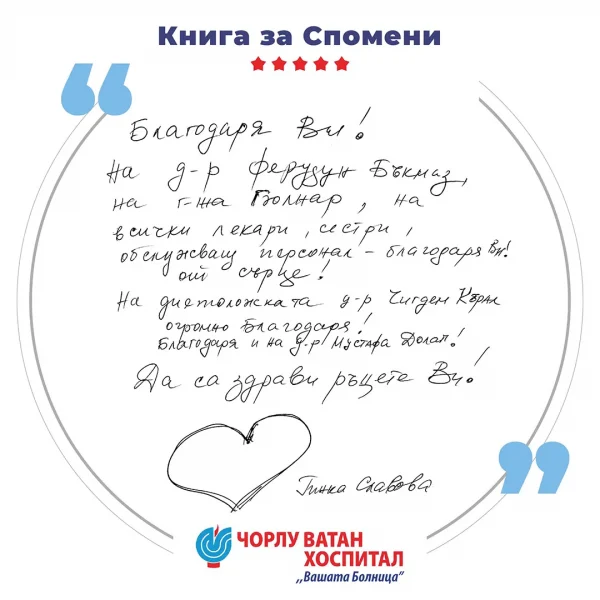 Книга за Спомени
Благодаря Ви!
На д-р Ферудун Бъкмаз,
на г-жа Гюлнар, на
всички лекари, сестри,
обслужващ персонал - благодаря Ви!
от сърце!
На диетоложката д-р Чигдем Кърал
огромно благодаря!
Благодаря и на д-р Мустафа Долап!
Да са здрави ръцете Ви!
Гинка Славова
ЧОРЛУ ВАТАН
ХОСПИТАЛ
,,Вашата Болница"